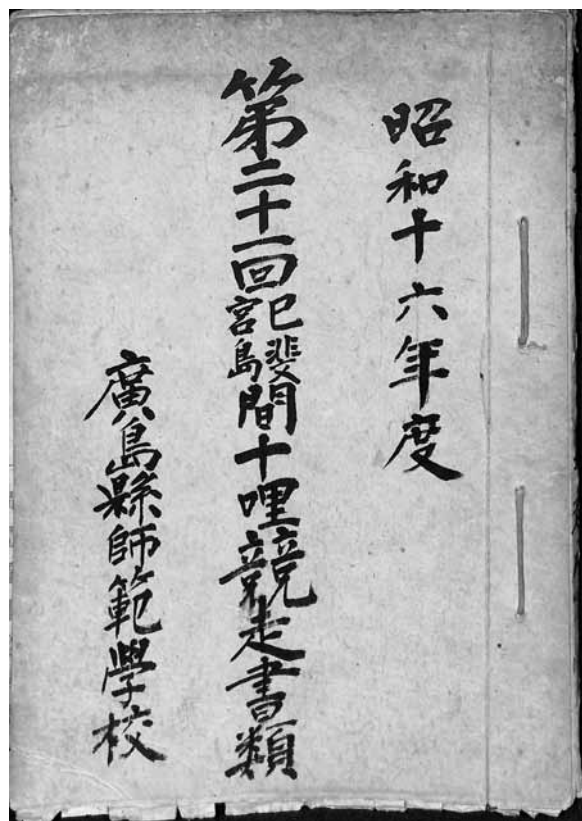 昭和十六年度
第二十一回己斐宮島間十哩競走書類
廣島縣師範學校